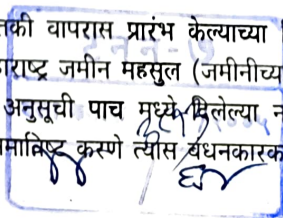 तकी वापरास प्रारंभ केल्याच्या
राष्ट्र जमीन महसुल (जमीनीच्य
अनुसूची पाच मध्ये दिलेल्या न
माविष्ट करणे त्यास बंधनकारक